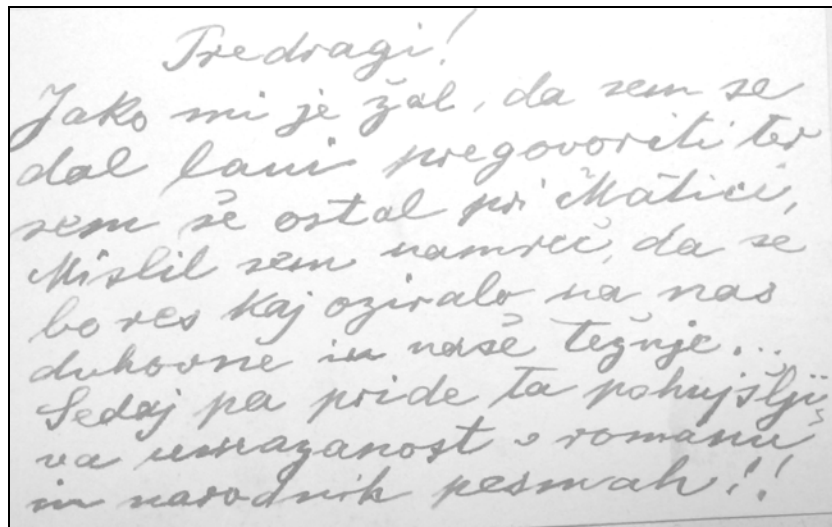 Predragi!
Jako mi je žal, da sem se
dal lani pregovoriti ter
sem še ostal pri Matici,
Mislil sem namreč, da se
bo res kaj oziralo na nas
duhovne in naše težnje...
Sedaj pa pride ta pohujšlji-
va umazanost v romanu
in narodnih pesmah!!